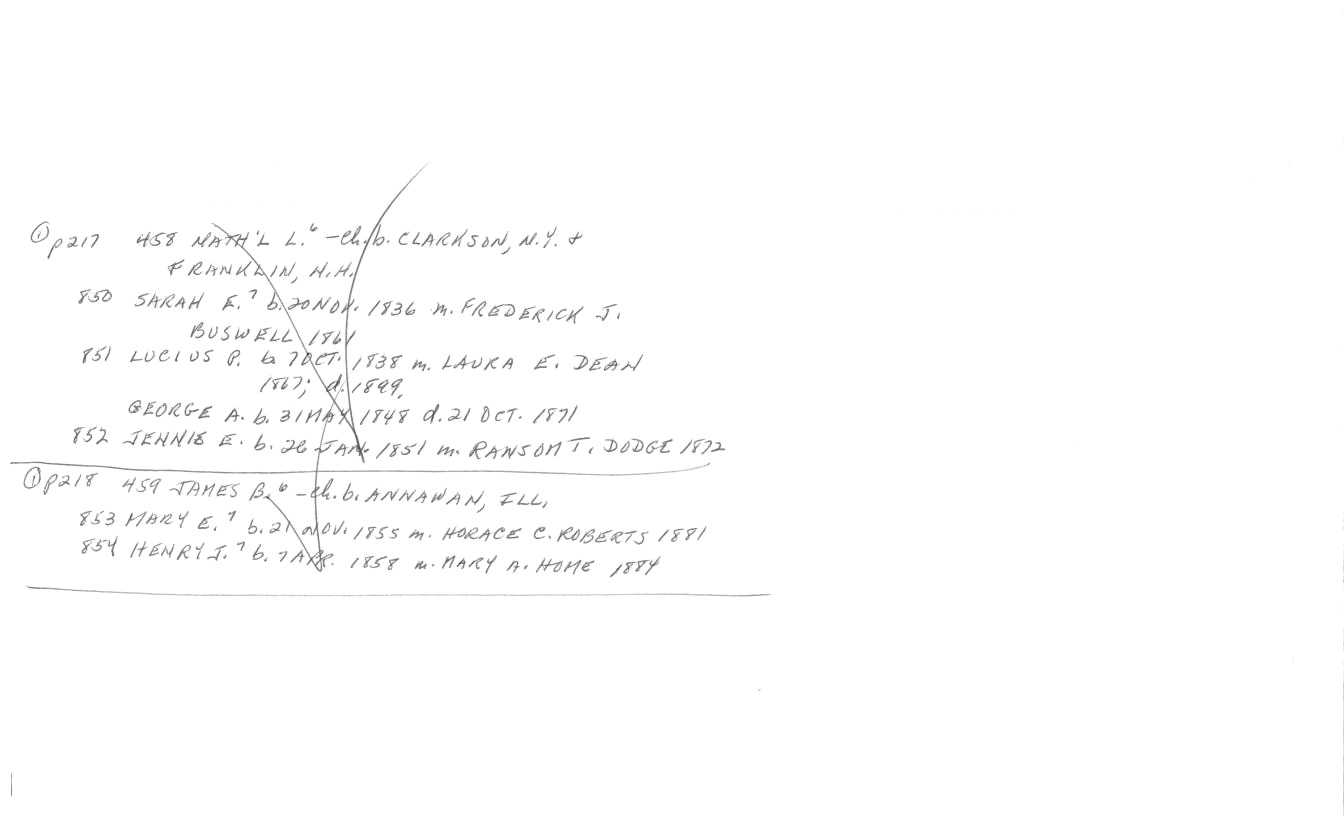 ① p217 458 NATH'L L.⁶ – ch. b. CLARKSON, N.Y. +
FRANKLIN, N.H.
850 SARAH E.⁷ b. 20 NOV. 1836 m. FREDERICK J.
BUSWELL 1861
851 LUCIUS P. b. 7 OCT. 1838 m. LAURA E. DEAN
1867; d. 1899.
GEORGE A. b. 31 MAY 1848 d. 21 OCT. 1871
852 JENNIE E. b. 26 JAN. 1851 m. RANSOM T. DODGE 1872
① p218 459 JAMES B.⁶ – ch. b. ANNAWAN, ILL.
853 MARY E.⁷ b. 21 NOV. 1855 m. HORACE C. ROBERTS 1881
854 HENRY J.⁷ b. 7 APR. 1858 m. MARY A. HOME 1884